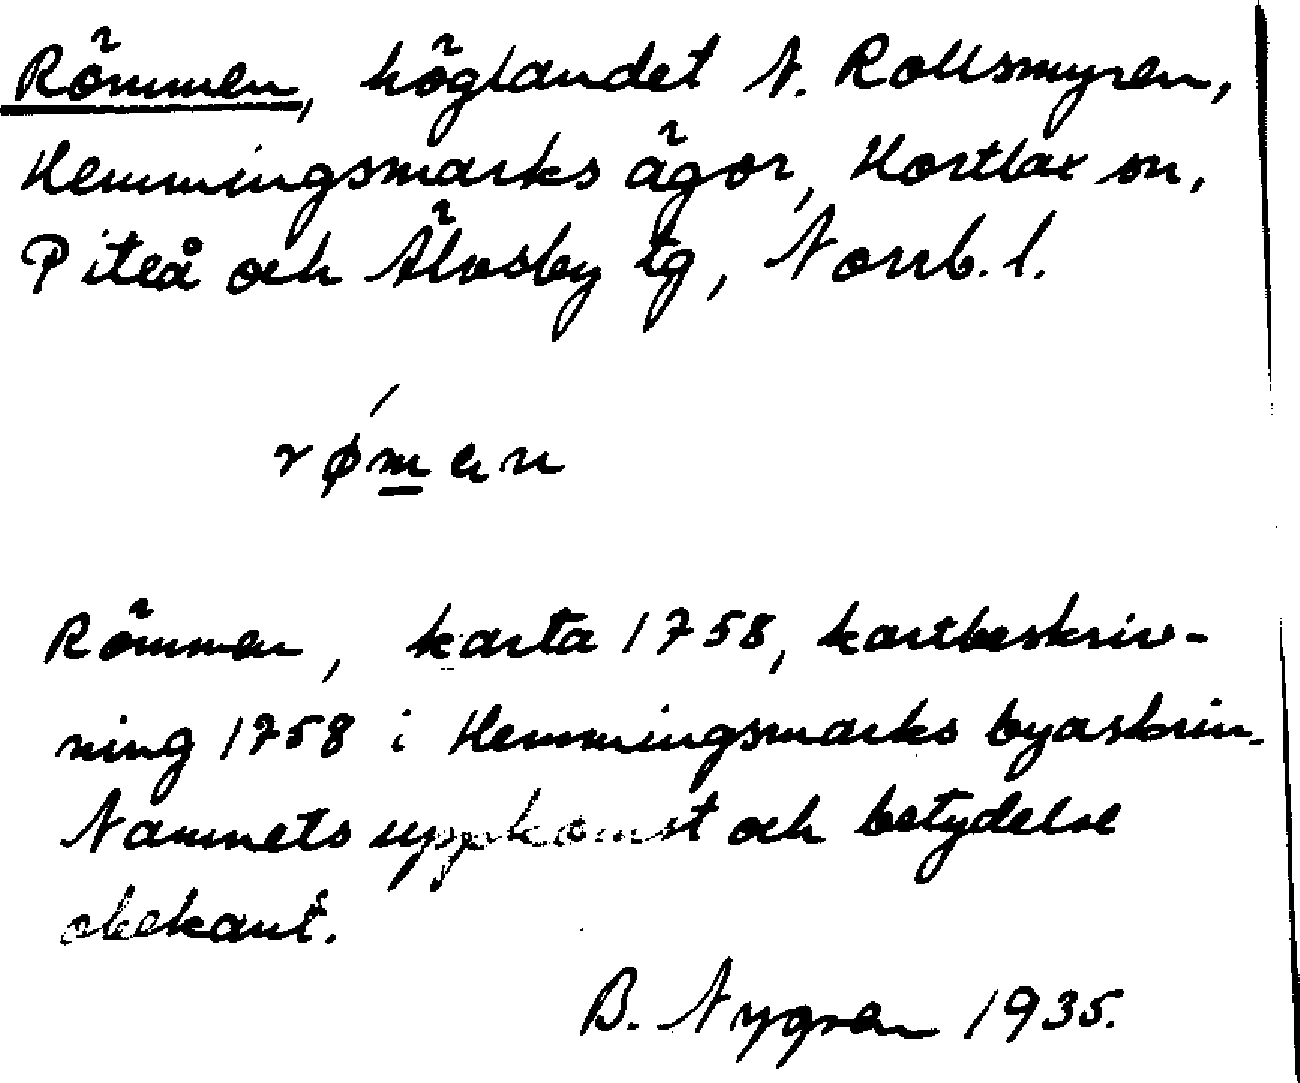 Römmen, höglandet N. Rollsmyren,
Hemmingsmarks ägor, Hortlax sn,
Piteå och Älvsby tg, Norrb. l.
røm̲ən
Römmen, karta 1758, kartbeskriv-
ning 1758 i Hemmingsmarks byaskrin.
Namnets uppkomst och betydelse
obekant.
B. Nygren 1935.